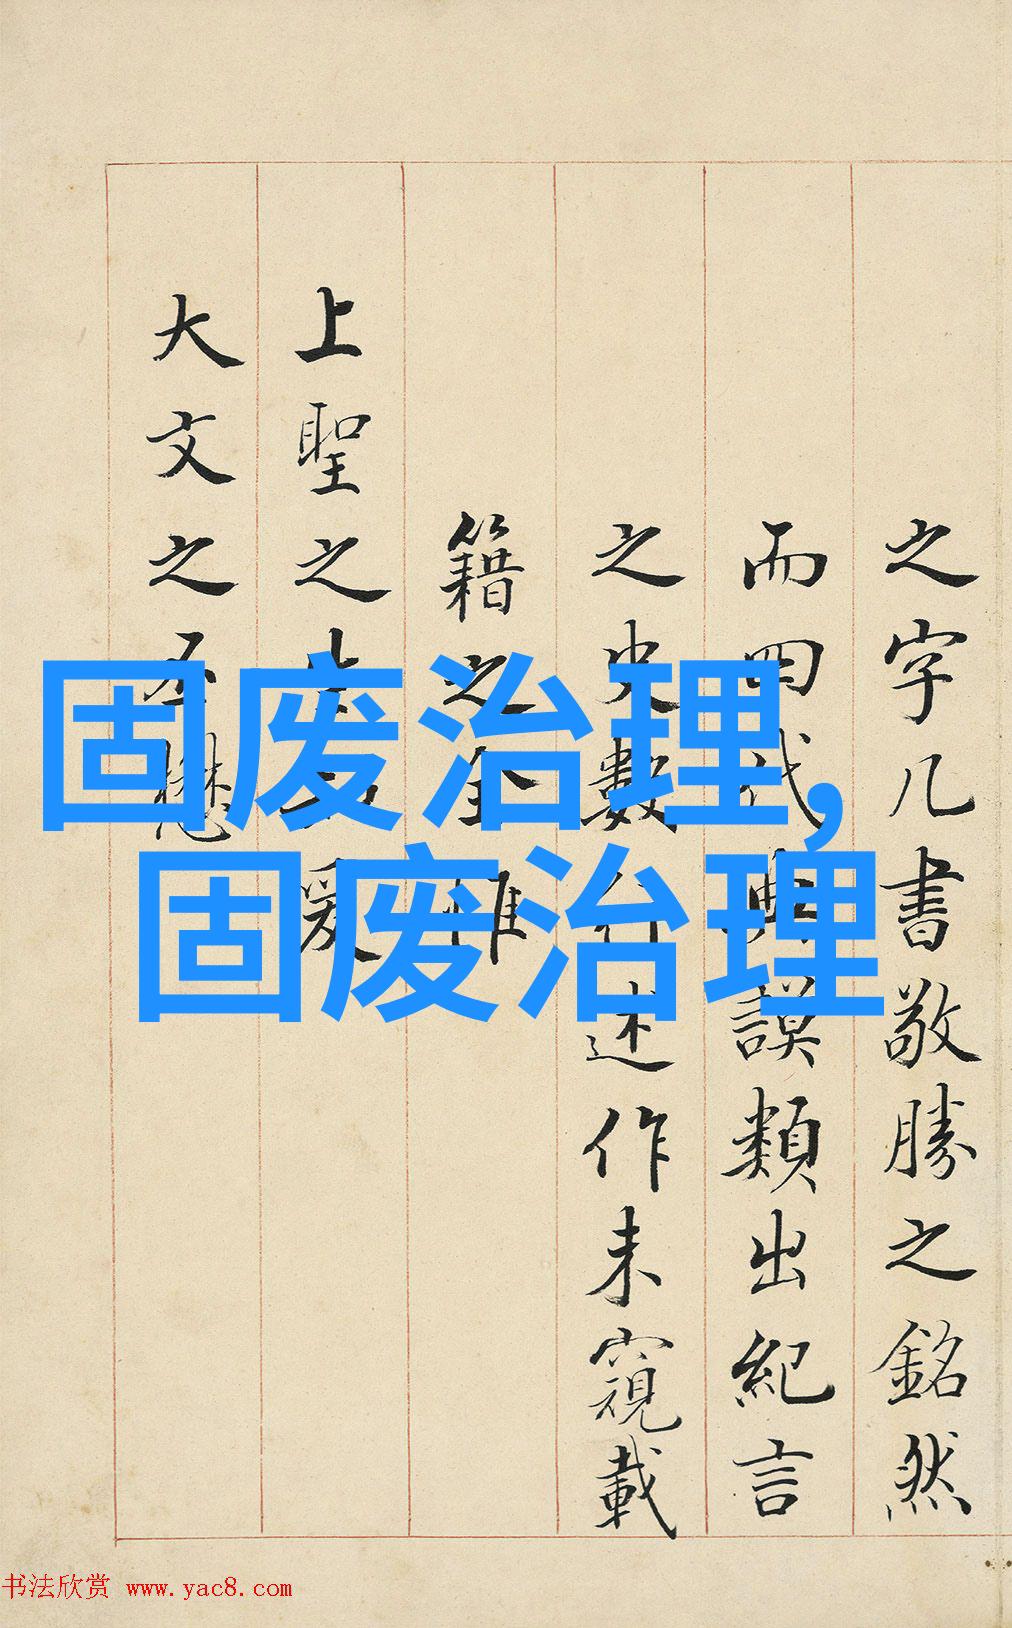 之字几書敬勝之銘然
而四代典謨類出紀言
之史數行述作未窺載
籍之全惟
上聖之爰
大文之丕懋
固废治理,
固废治理
书法欣赏 www.yac8.com